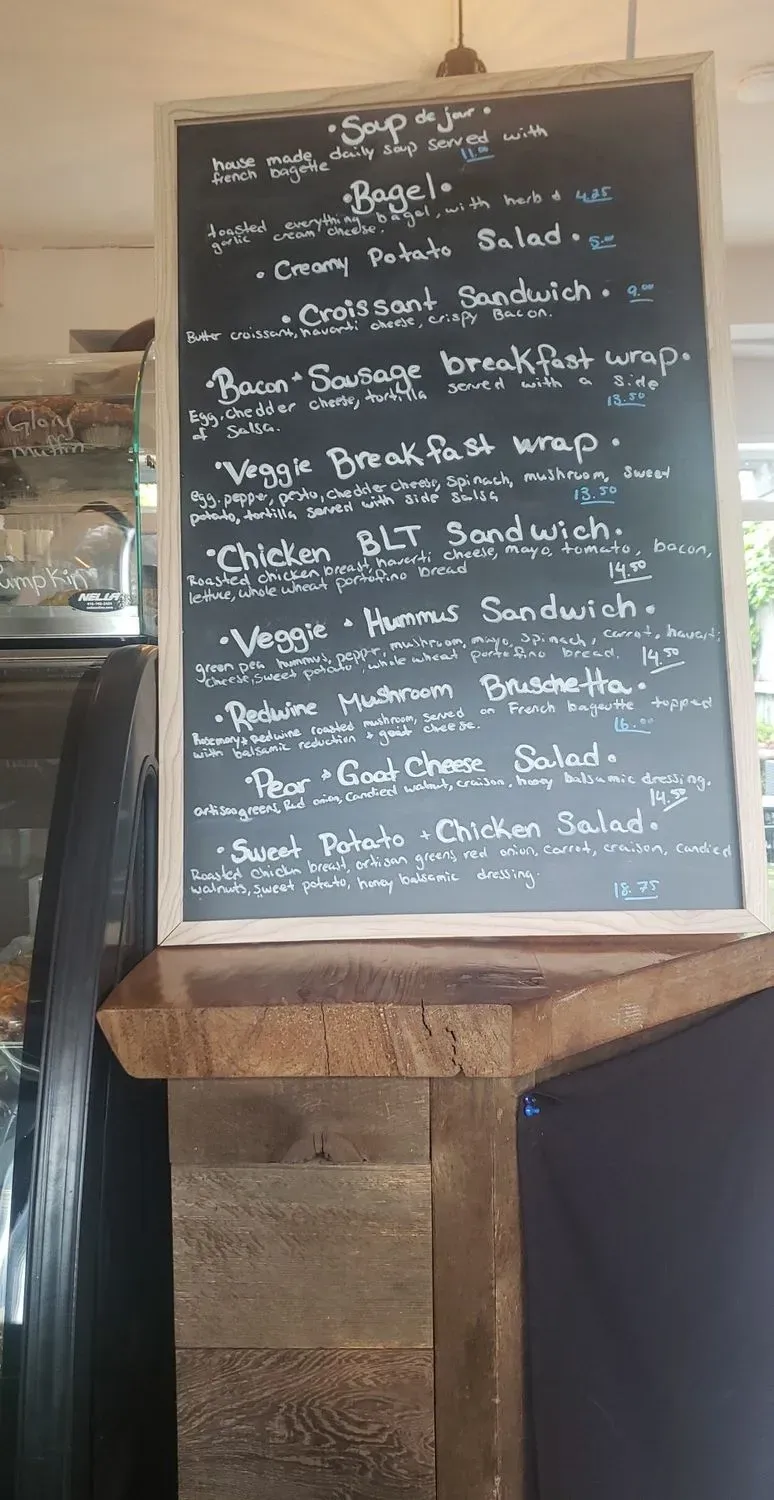 • Soup de jour •
house made daily soup served with
french bagette 11.00
• Bagel •
toasted everything bagel, with herb & 4.25
garlic cream cheese.
• Creamy Potato Salad • 5.00
• Croissant Sandwich • 9.00
Butter croissant, havarti cheese, crispy Bacon.
• Bacon + Sausage breakfast wrap •
Egg, chedder cheese, tortilla served with a side
of Salsa. 13.50
• Veggie Breakfast wrap •
egg, pepper, pesto, chedder cheese, spinach, mushroom, sweet
potato, tortilla served with side salsa 13.50
• Chicken BLT Sandwich •
Roasted chicken breast, havarti cheese, mayo, tomato, bacon,
lettuce, whole wheat portofino bread 14.50
• Veggie + Hummus Sandwich •
green pea hummus, pepper, mushroom, mayo, spinach, carrot, havarti
cheese, sweet potato, whole wheat portofino bread. 14.50
• Redwine Mushroom Bruschetta •
Rosemary + Redwine roasted mushroom, served on French baguette topped
with balsamic reduction + goat cheese. 16.00
• Pear + Goat Cheese Salad •
artisan greens, Red onion, Candied walnut, craison, honey balsamic dressing.
14.50
• Sweet Potato + Chicken Salad •
Roasted chicken breast, artisan greens, red onion, carrot, craison, candied
walnuts, sweet potato, honey balsamic dressing. 18.75
Glory
Muffin
umpkin
NELLA